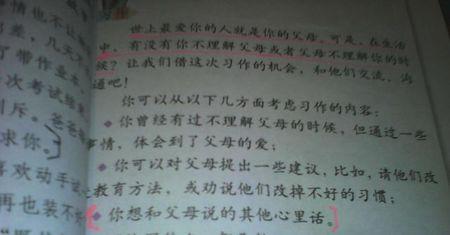 世上最爱你的人就是你的父母。可是，在生活
中，有没有你不理解父母或者父母不理解你的时
候？让我们借这次习作的机会，和他们交流、沟
通吧！
你可以从以下几方面考虑习作的内容：
◆你曾经有过不理解父母的时候，但通过一些
事情，体会到了父母的爱；
◆你可以对父母提出一些建议，比如，请他们改
教育方法，或劝说他们改掉不好的习惯；
◆你想和父母说的其他心里话。
情也不让
差，几天
了带作业本
次考试结
斥。爸爸
求你。
喜欢动手
再也装不